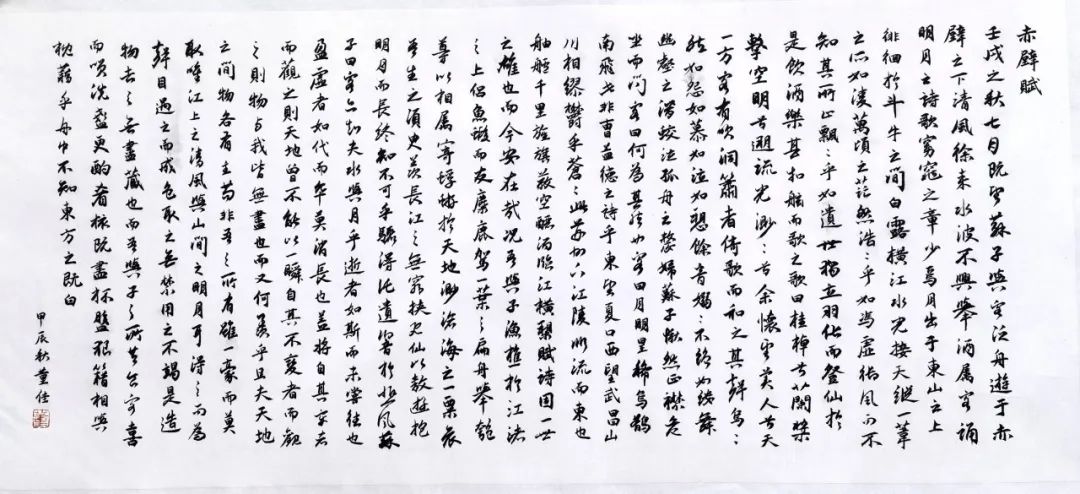 赤壁賦
壬戌之秋七月既望蘇子與客泛舟遊于赤
壁之下清風徐來水波不興舉酒属客誦
明月之詩歌窈窕之章少焉月出于東山之上
徘徊於斗牛之間白露橫江水光接天縱一葦
之所如凌萬頃之茫然浩〻乎如馮虛御風而不
知其所止飄〻乎如遺世獨立羽化而登仙於
是飲酒樂甚扣舷而歌之歌曰桂棹兮蘭槳
擊空明兮遡流光渺〻兮余懷望美人兮天
一方客有吹洞簫者倚歌而和之其聲烏〻
然如怨如慕如泣如愬餘音嫋〻不絕如縷舞
幽壑之潛蛟泣孤舟之嫠婦蘇子愀然正襟危
坐而問客曰何為其然也客曰月明星稀烏鵲
南飛此非曹孟德之詩乎東望夏口西望武昌山
川相繆鬱乎蒼〻此
方其破荊州下江陵順流而東也
舳艫千里旌旗蔽空釃酒臨江橫槊賦詩固一世
之雄也而今安在哉况吾與子漁樵於江渚
之上侶魚蝦而友麋鹿駕一葉之扁舟舉匏
尊以相属寄蜉蝣於天地渺滄海之一粟哀
吾生之須臾羡長江之無窮挾飛仙以遨遊抱
明月而長終知不可乎驟得託遺響於悲風蘇
子曰客亦知夫水與月乎逝者如斯而未嘗往也
盈虛者如代而卒莫消長也蓋將自其變者
而觀之則天地曾不能以一瞬自其不變者而觀
之則物與我皆無盡也而又何羡乎且夫天地
之間物各有主苟非吾之所有雖一毫而莫
取唯江上之清風與山間之明月耳得之而為
聲目遇之而成色取之無禁用之不竭是造
物者之無盡藏也而吾與子之所共食客喜
而笑洗盞更酌肴核既盡杯盤狼籍相與
枕藉乎舟中不知東方之既白
甲辰秋董仕